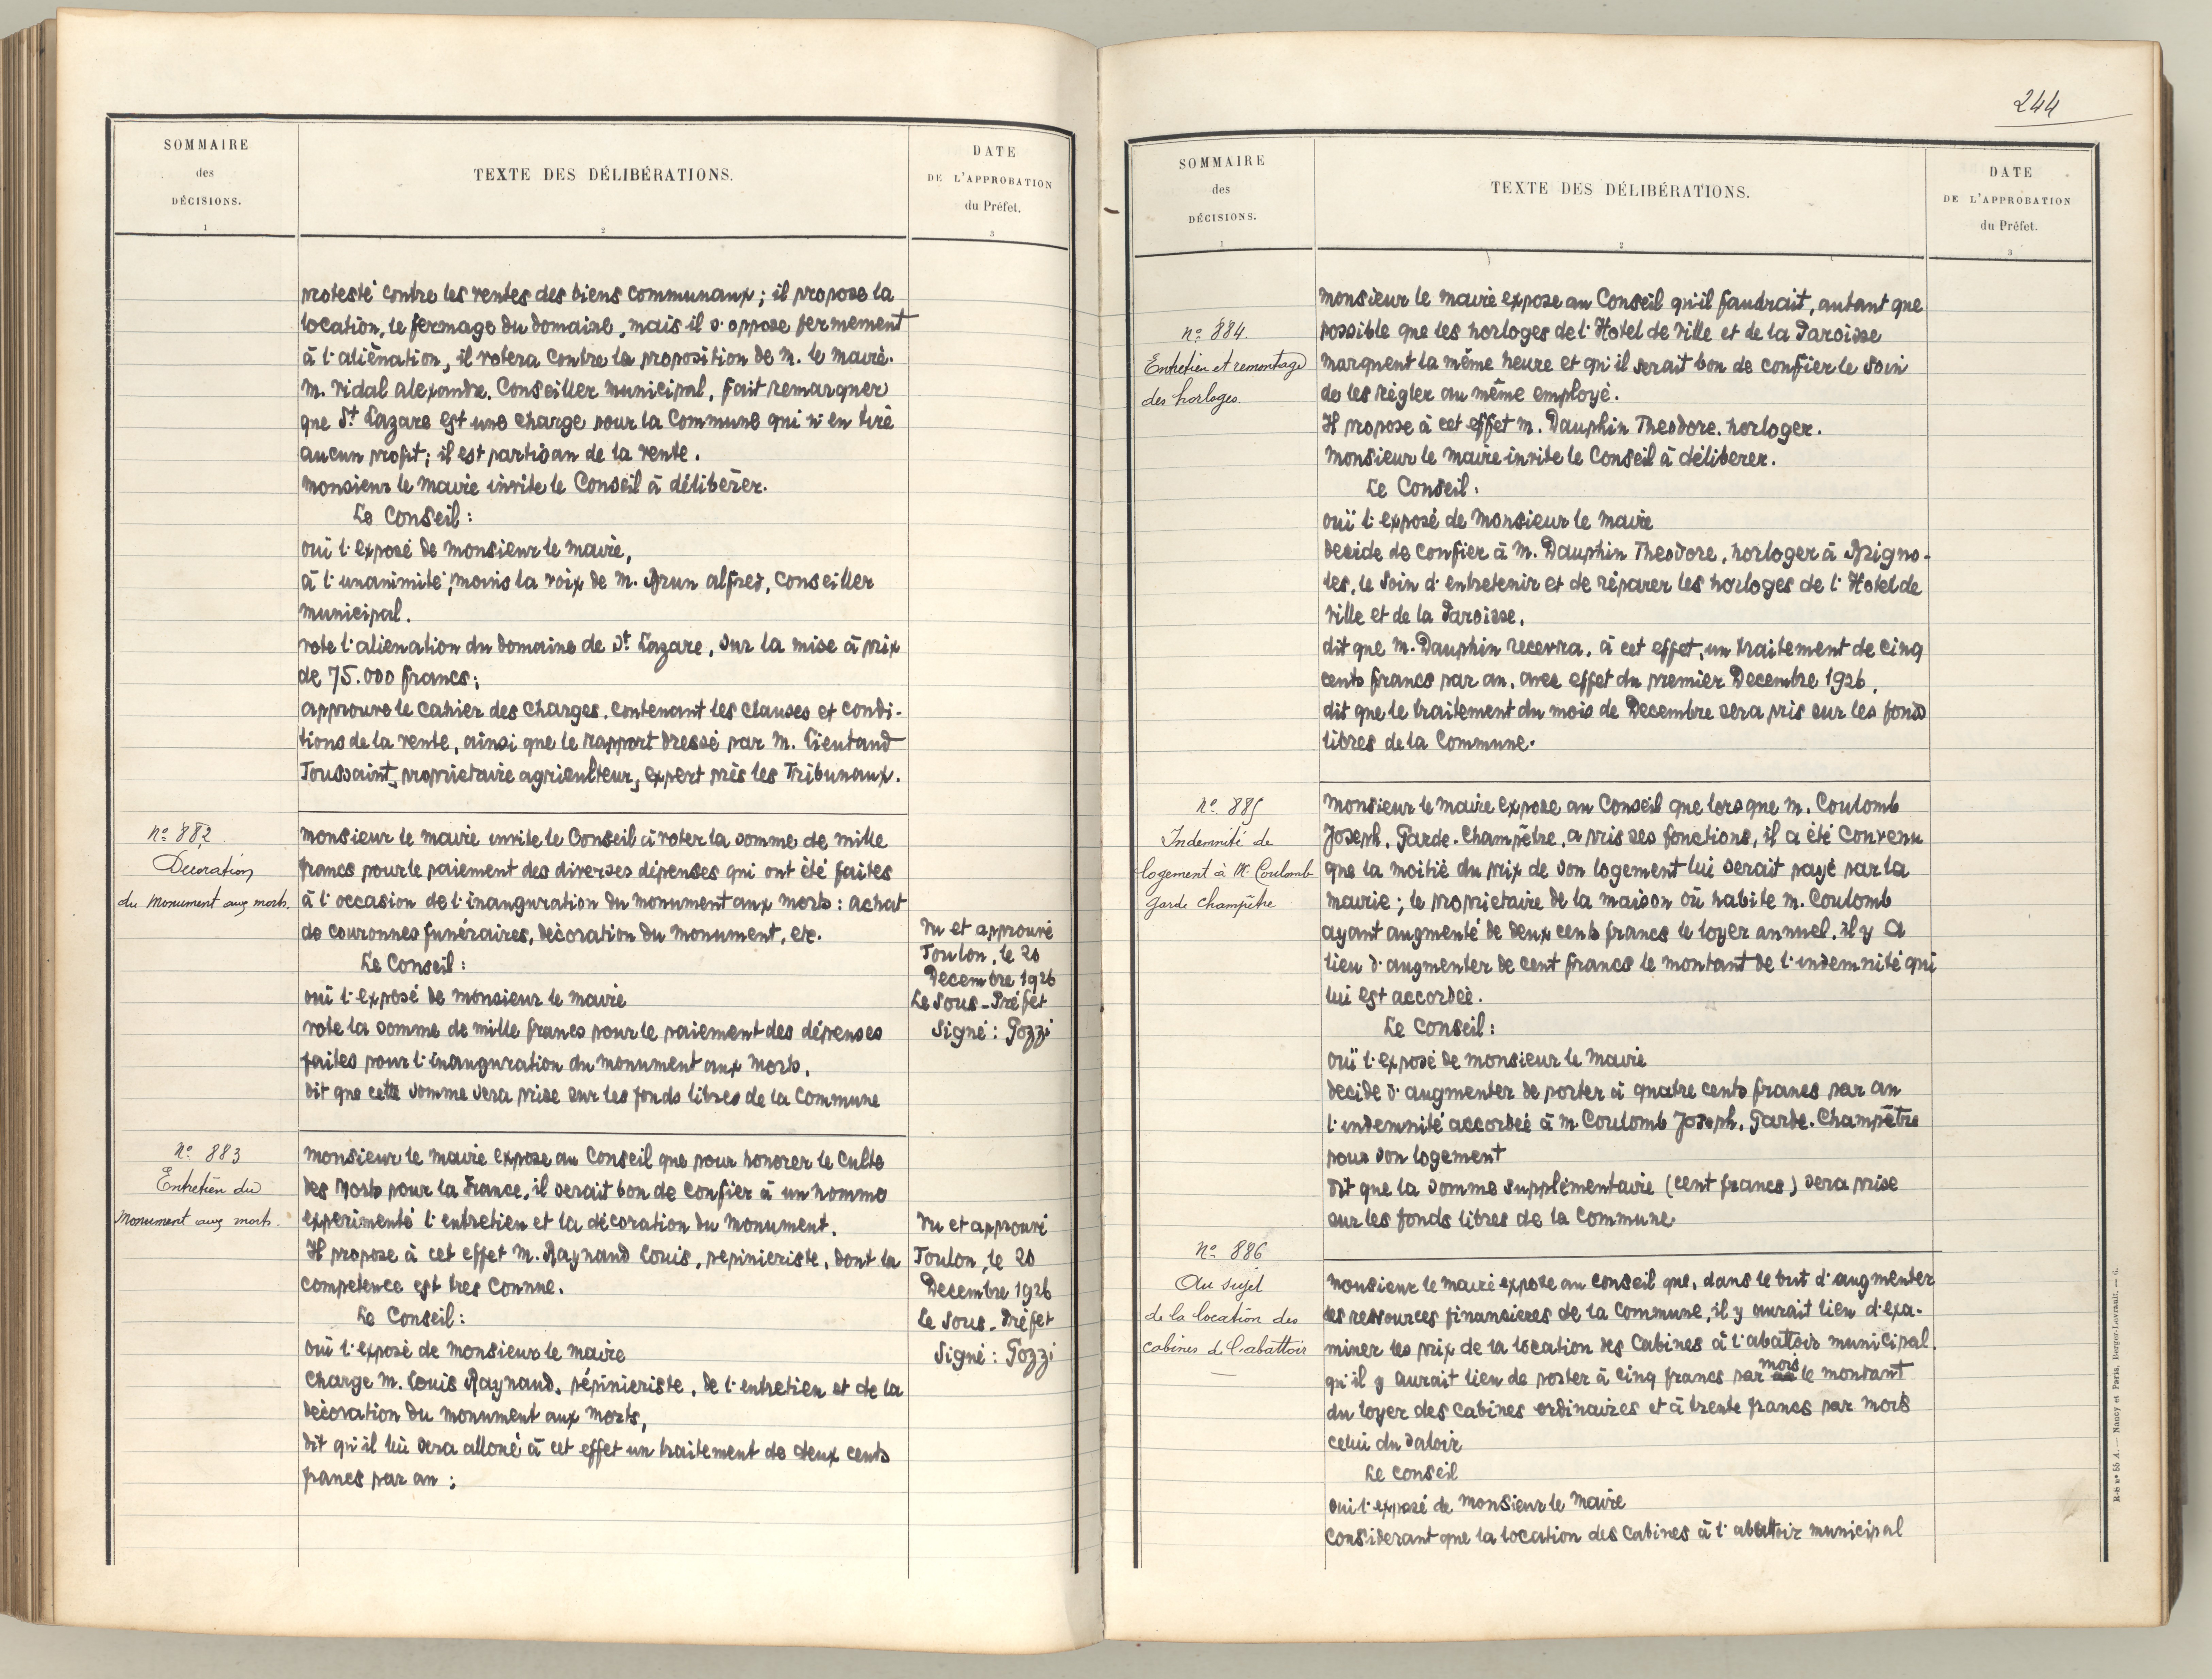 SOMMAIRE
des
DÉCISIONS.
1
TEXTE DES DÉLIBÉRATIONS.
2
DATE
DE L'APPROBATION
du Préfet.
3
protesté contre les ventes des biens communaux ; il propose la
location, le fermage du domaine, mais il s'oppose fermement
à l'aliénation, il votera contre la proposition de M. le Maire.
M. Vidal Alexandre, Conseiller Municipal, fait remarquer
que St Lazare est une charge pour la Commune qui n'en tire
aucun profit ; il est partisan de la vente.
Monsieur le Maire invite le Conseil à délibérer.
Le Conseil :
ouï l'exposé de Monsieur le Maire,
à l'unanimité, moins la voix de M. Brun Alfred, Conseiller
Municipal.
vote l'aliénation du domaine de St Lazare, sur la mise à prix
de 75.000 francs ;
approuve le Cahier des Charges, contenant les clauses et condi-
tions de la vente, ainsi que le rapport dressé par M. Lieutaud
Toussaint, propriétaire agriculteur, expert près les Tribunaux.
No 882
Décoration
du Monument aux morts.
Monsieur le Maire invite le Conseil à voter la somme de mille
francs pour le paiement des diverses dépenses qui ont été faites
à l'occasion de l'inauguration du Monument aux Morts : achat
de couronnes funéraires, décoration du Monument, etc.
Le Conseil :
ouï l'exposé de Monsieur le Maire
vote la somme de mille francs pour le paiement des dépenses
faites pour l'inauguration du Monument aux Morts.
dit que cette somme sera prise sur les fonds libres de la Commune
Vu et approuvé
Toulon, le 20
Decembre 1926
Le Sous-Préfet
Signé : Gozzi
No 883
Entretien du
Monument aux morts.
Monsieur le Maire expose au Conseil que pour honorer le Culte
des Morts pour la France, il serait bon de confier à un homme
experimenté l'entretien et la décoration du Monument.
Il propose à cet effet M. Raynaud Louis, pepinieriste, dont la
competence est tres connue.
Le Conseil :
ouï l'exposé de Monsieur le Maire
Charge M. Louis Raynaud, pépinieriste, de l'entretien et de la
decoration du Monument aux Morts,
dit qu'il lui sera alloué à cet effet un traitement de deux cents
francs par an ;
Vu et approuvé
Toulon, le 20
Decembre 1926
Le Sous-Préfet
Signé : Gozzi
244
SOMMAIRE
des
DÉCISIONS.
1
TEXTE DES DÉLIBÉRATIONS.
2
DATE
DE L'APPROBATION
du Préfet.
3
No 884.
Entretien et remontage
des horloges.
Monsieur le Maire expose au Conseil qu'il faudrait, autant que
possible que les horloges de l'Hotel de Ville et de la Paroisse
marquent la même heure et qu'il serait bon de confier le soin
de les régler au même employé.
Il propose à cet effet M. Dauphin Theodore, horloger.
Monsieur le Maire invite le Conseil à déliberer.
Le Conseil :
ouï l'exposé de Monsieur le Maire
decide de confier à M. Dauphin Theodore, horloger à Brigno-
les, le soin d'entretenir et de réparer les horloges de l'Hotel de
Ville et de la Paroisse,
dit que M. Dauphin recevra, à cet effet, un traitement de cinq
cents francs par an, avec effet du premier Decembre 1926,
dit que le traitement du mois de Decembre sera pris sur les fonds
libres de la Commune.
No 885
Indemnité de
logement à M. Coulomb
garde champêtre
Monsieur le Maire expose au Conseil que lorsque M. Coulomb
Joseph, Garde-Champêtre, a pris ses fonctions, il a été convenu
que la moitié du prix de son logement lui serait payé par la
Mairie ; le proprietaire de la maison où habite M. Coulomb
ayant augmenté de deux cents francs le loyer annuel, il y a
lieu d'augmenter de cent francs le montant de l'indemnité qui
lui est accordée.
Le Conseil :
ouï l'exposé de Monsieur le Maire
decide d'augmenter de porter à quatre cents francs par an
l'indemnité accordée à M. Coulomb Joseph, Garde-Champêtre
pour son logement
dit que la somme supplémentaire (cent francs) sera prise
sur les fonds libres de la Commune.
No 886
Au sujet
de la location des
cabines de l'abattoir
Monsieur le Maire expose au conseil que, dans le but d'augmenter
les ressources financieres de la Commune, il y aurait lieu d'exa-
miner les prix de la location des Cabines à l'abattoir municipal.
qu'il y aurait lieu de porter à cinq francs par mois le montant
du loyer des cabines ordinaires et à trente francs par mois
celui du saloir
Le Conseil
oui l'exposé de Monsieur le Maire
Considerant que la location des Cabines à l'abattoir municipal
R-b No 55 A. — Nancy et Paris, Berger-Levrault. — 6.